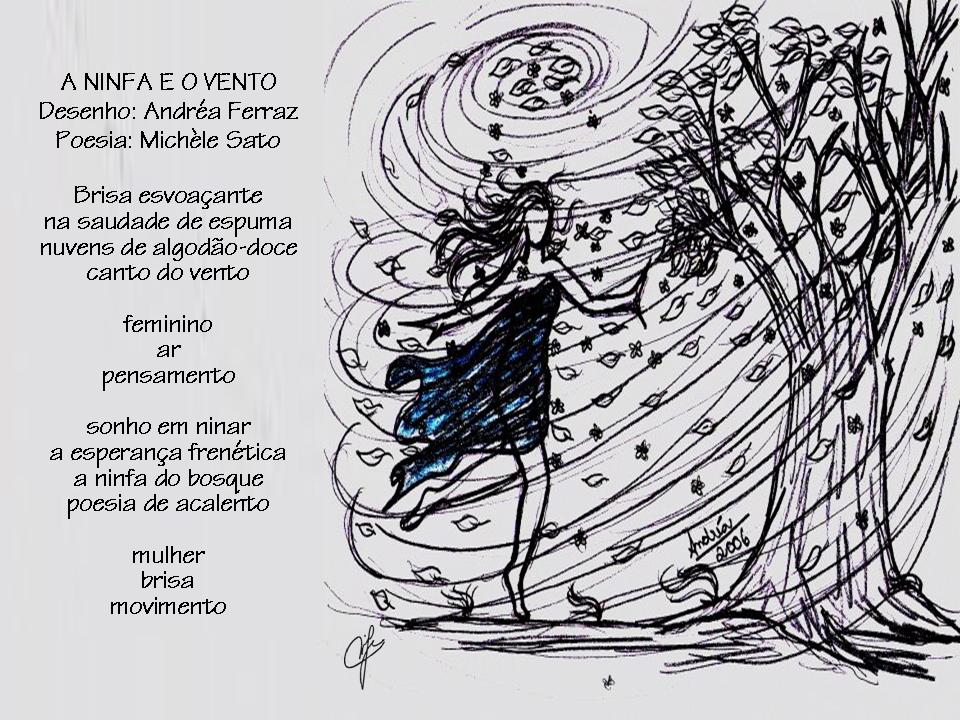 A NINFA E O VENTO
Desenho: Andréa Ferraz
Poesia: Michèle Sato
Brisa esvoaçante
na saudade de espuma
nuvens de algodão-doce
canto do vento
feminino
ar
pensamento
sonho em ninar
a esperança frenética
a ninfa do bosque
poesia de acalento
mulher
brisa
movimento
Andréa
2006